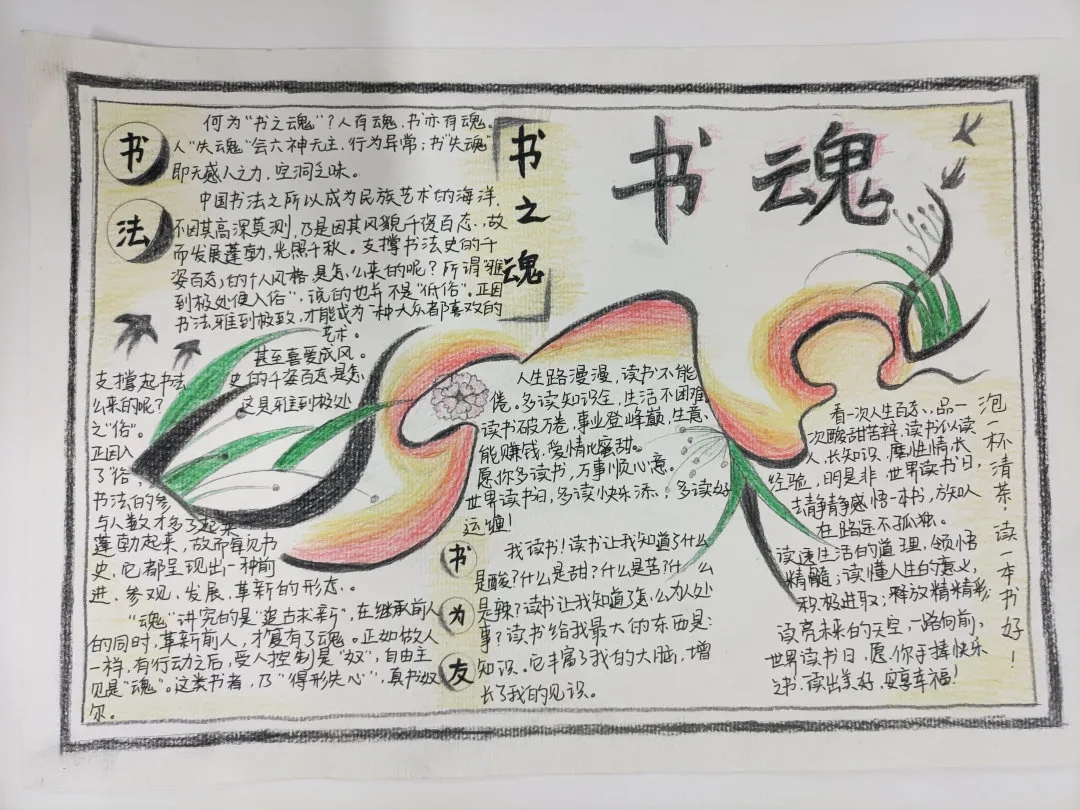 书魂
书法
书之魂
何为“书之魂”?人有魂,书亦有魂。
人“失魂”会六神无主,行为异常;书“失魂”
即无感人之力,空洞乏味。
中国书法之所以成为民族艺术的海洋,
不因其高深莫测,乃是因其风貌千姿百态,故
而发展蓬勃,光照千秋。支撑书法史的千
姿百态的个人风格是怎么来的呢?所谓“雅
到极处便入俗”,说的也并不是“低俗”。正因
书法雅到极致,才能成为一种大众都喜欢的
艺术。
甚至喜爱成风。
支撑起书法史的千姿百态是怎
么来的呢?这是雅到极处
之“俗”。
正因入
了“俗”,
书法的参
与人数才多了起来
蓬勃起来,故而每见书
史,它都呈现出一种前
进、参观、发展、革新的形态。
“魂”讲究的是“追古求新”,在继承前人
的同时,革新前人,才复有了魂。正如做人
一样,有行动之后,受人控制是“奴”,自由主
见是“魂”。这类书者,乃“得形失心”,真书奴
尔。
人生路漫漫,读书不能
倦。多读知识在,生活不困难
读书破万卷,事业登峰巅,生意
能赚钱,爱情比蜜甜。
愿你多读书,万事顺心意。
世界读书日,多读小快乐添,多读好
这缠!
书为友
我读书!读书让我知道了什么
是酸?什么是甜?什么是苦?什么
是辣?读书让我知道了怎么为人处
事?读书给我最大的东西是:
知识。它丰富了我的大脑,增
长了我的见识。
看一次人生百态,品一
次酸甜苦辣,读书以读
人,长知识,磨性情,长
经验,明是非,世界读书日,
去静静感悟一本书,放知人
在路途不孤独。
读速生活的道理,领悟
精髓;读懂人生的意义,
积极进取;释放精精彩,
读亮未来的天空,一路向前,
世界读书日,愿你手捧快乐
之书,读出美好,安享幸福!
泡一杯清茶!读一本书好!